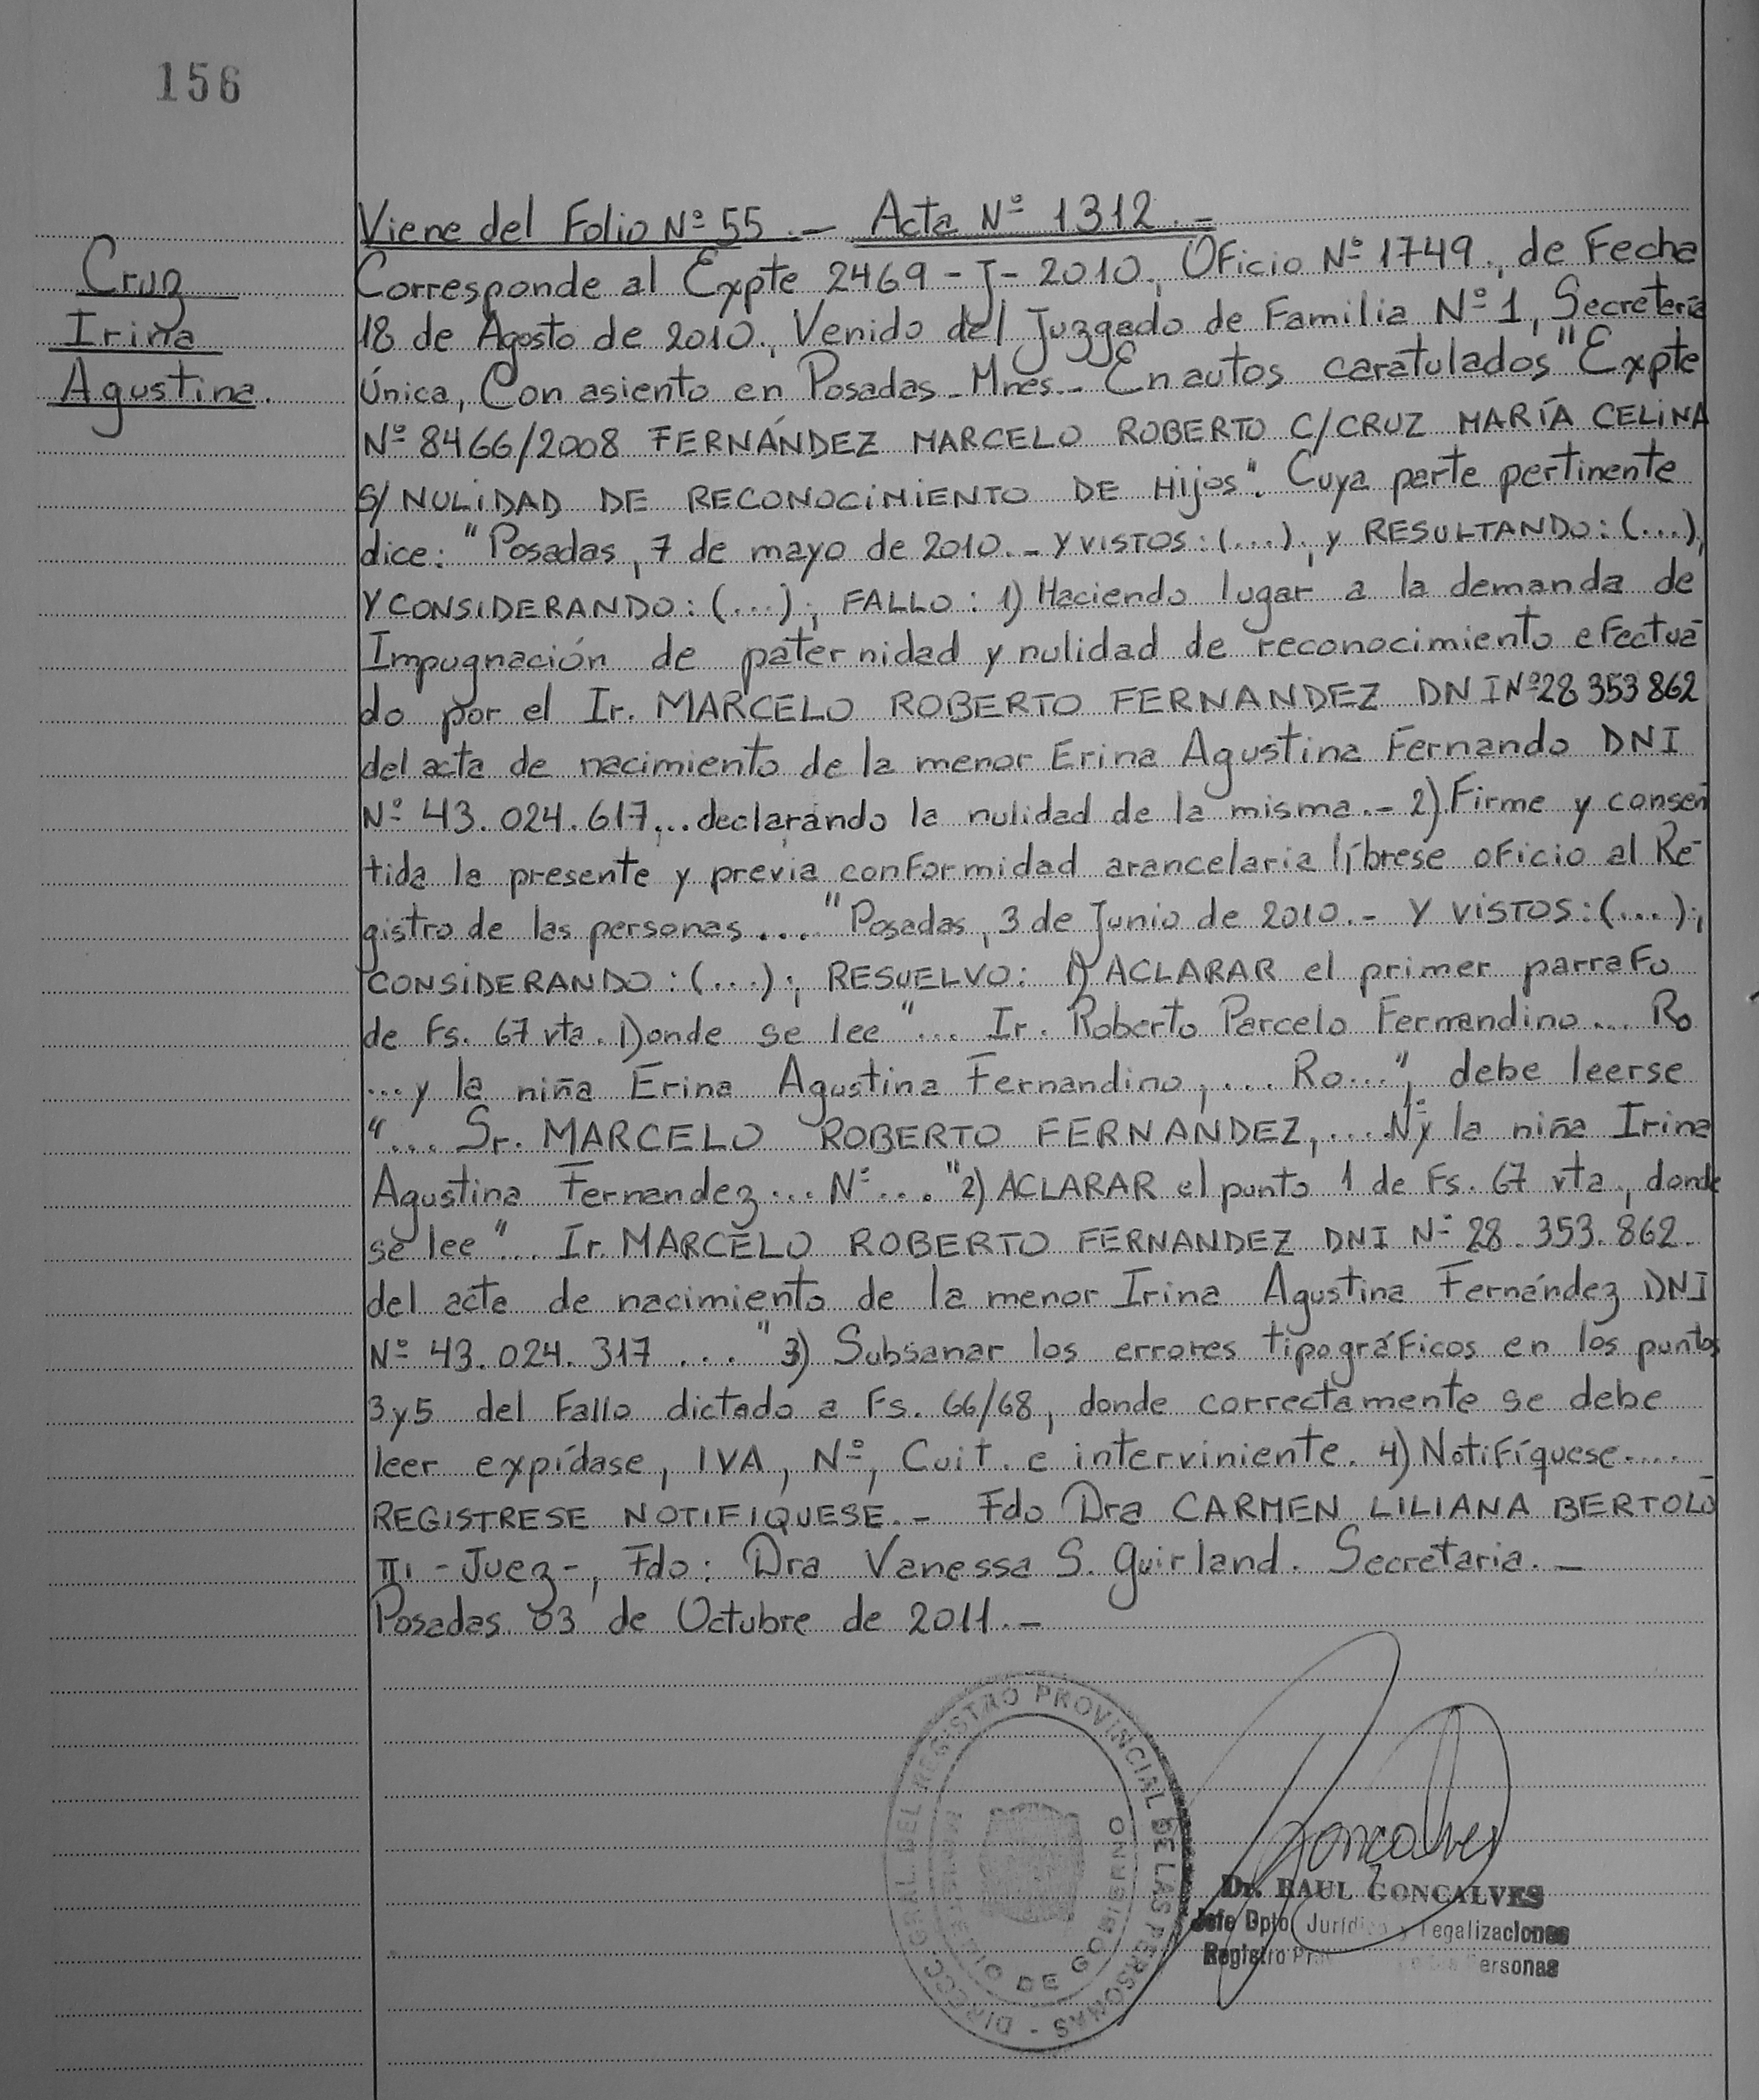 156
Viene del Folio Nº 55 .- Acta Nº 1312.-
Cruz
Irina
Agustina.
Corresponde al Expte 2469-J-2010, Oficio Nº 1749., de Fecha
18 de Agosto de 2010., Venido del Juzgado de Familia Nº 1, Secretaría
Única, Con asiento en Posadas-Mnes.- En autos caratulados "Expte
Nº 8466/2008 FERNÁNDEZ MARCELO ROBERTO C/CRUZ MARÍA CELINA
S/ NULIDAD DE RECONOCIMIENTO DE Hijos". Cuya parte pertinente
dice: "Posadas, 7 de mayo de 2010.- Y VISTOS: (...), y RESULTANDO: (...),
Y CONSIDERANDO: (...); FALLO: 1) Haciendo lugar a la demanda de
Impugnación de paternidad y nulidad de reconocimiento efectua-
do por el Ir. MARCELO ROBERTO FERNANDEZ DNI Nº 28 353 862
del acta de nacimiento de la menor Erina Agustina Fernando DNI
Nº 43.024.617... declarando la nulidad de la misma.- 2) Firme y consen
tida la presente y previa conformidad arancelaria líbrese oficio al Re-
gistro de las personas...." "Posadas, 3 de Junio de 2010.- Y VISTOS: (...);
CONSIDERANDO: (...); RESUELVO: 1) ACLARAR el primer parrafo
de Fs. 67 vta. Donde se lee "... Ir. Roberto Parcelo Fernandino... Ro
... y la niña Erina Agustina Fernandino, ... Ro...", debe leerse
"... Sr. MARCELO ROBERTO FERNANDEZ, ... Nº y la niña Irina
Agustina Fernandez... Nº ..." 2) ACLARAR el punto 1 de Fs. 67 vta, donde
se lee "... Ir. MARCELO ROBERTO FERNANDEZ DNI Nº 28.353.862.
del acta de nacimiento de la menor Irina Agustina Fernández DNI
Nº 43.024.317 ...." 3) Subsanar los errores tipográficos en los puntos
3 y 5 del Fallo dictado a Fs. 66/68, donde correctamente se debe
leer expídase, IVA, Nº, Cuit. e interviniente. 4) Notifíquese....
REGISTRESE NOTIFIQUESE.- Fdo Dra CARMEN LILIANA BERTOLO-
TTI - Juez-, Fdo: Dra Vanessa S. Guirland. Secretaria.-
Posadas 03 de Octubre de 2011.-
DIRECC. GRAL DEL REGISTRO PROVINCIAL DE LAS PERSONAS -
MINISTERIO DE GOBIERNO
Goncalves
Dr. RAUL GONCALVES
Jefe Dpto Jurídico y Legalizaciones
Registro Personas